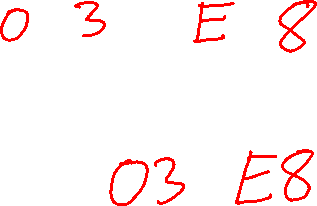 0 3 E 8
03 E8